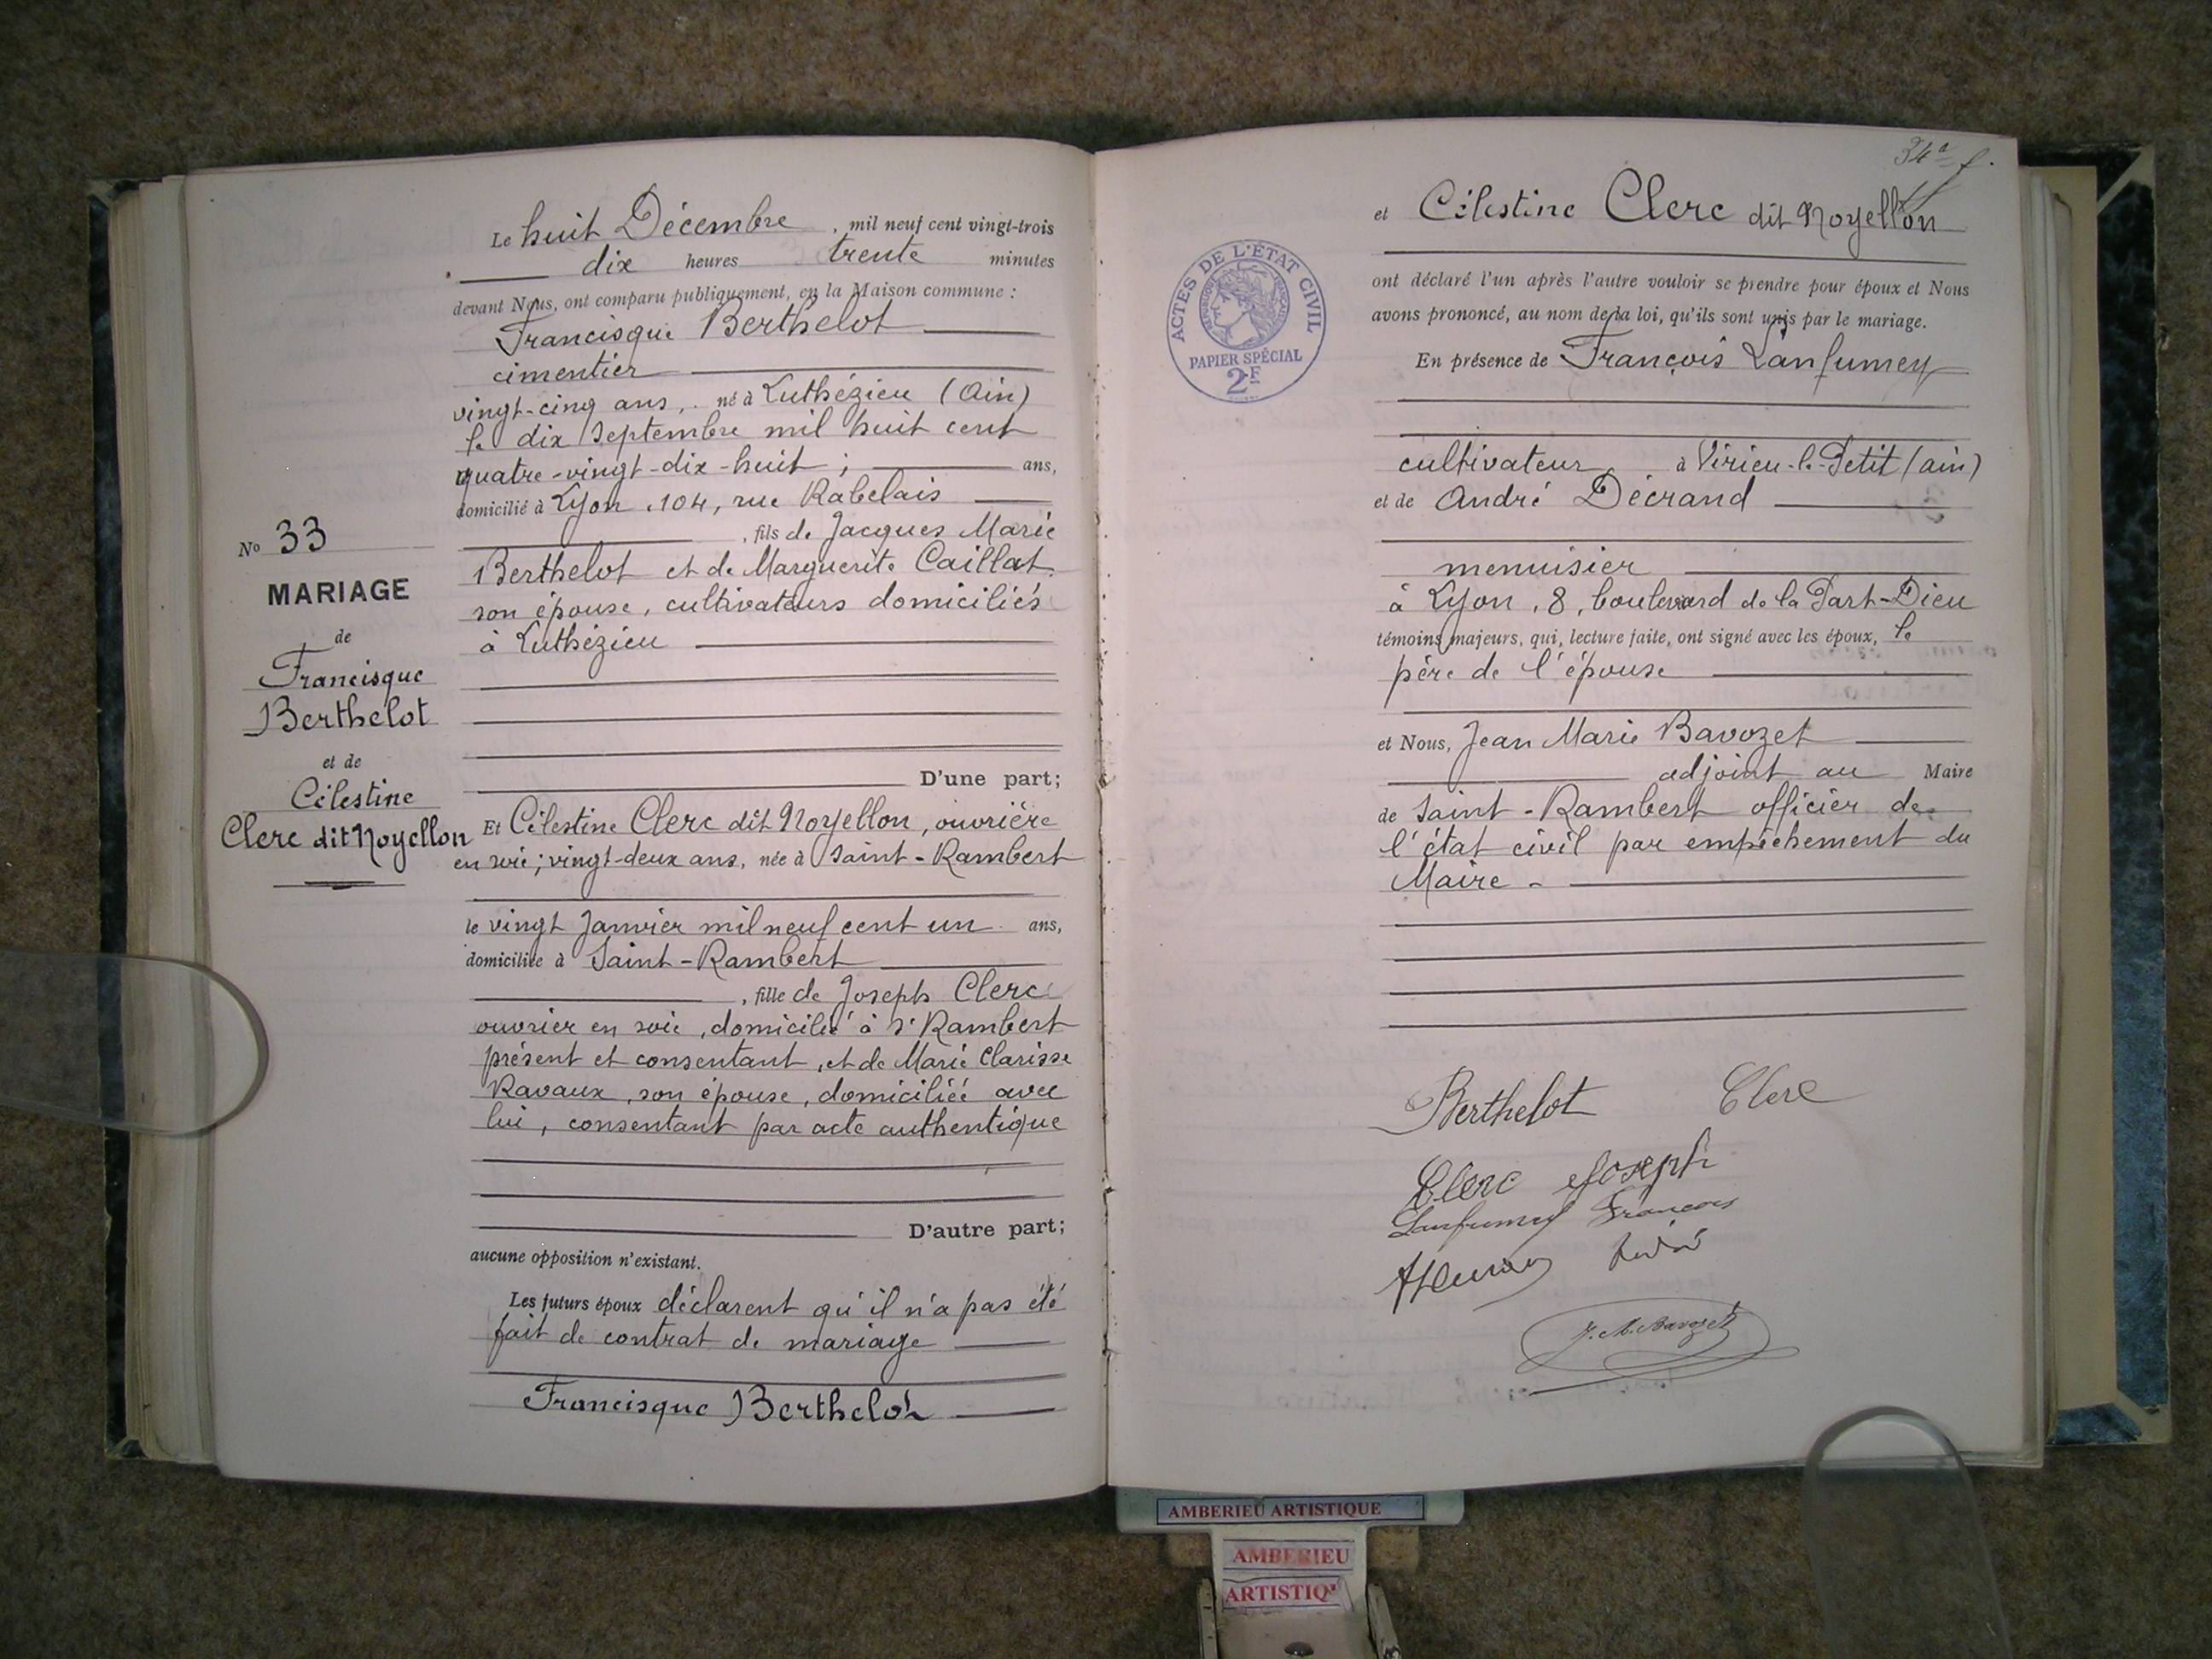 Le huit Décembre, mil neuf cent vingt-trois
dix heures trente minutes
devant Nous, ont comparu publiquement, en la Maison commune :
Francisque Berthelot
cimentier
vingt-cinq ans, né à Luthézieu (Ain)
le dix Septembre mil huit cent
quatre-vingt-dix-huit ; ans,
domicilié à Lyon, 104, rue Rabelais
, fils de Jacques Marie
Berthelot et de Marguerite Caillat
son épouse, cultivateurs domiciliés
à Luthézieu
D'une part;
No 33
MARIAGE
de
Francisque
Berthelot
et de
Célestine
Clerc dit Noyellon
Et Célestine Clerc dit Noyellon, ouvrière
en soie ; vingt-deux ans, née à Saint-Rambert
le vingt Janvier mil neuf cent un ans,
domiciliée à Saint-Rambert
, fille de Joseph Clerc
ouvrier en soie, domicilié à St Rambert
présent et consentant, et de Marie Clarisse
Ravaux, son épouse, domiciliée avec
lui, consentant par acte authentique
D'autre part;
aucune opposition n'existant.
Les futurs époux déclarent qu'il n'a pas été
fait de contrat de mariage
Francisque Berthelot
34e f.
et Célestine Clerc dit Noyellon
ont déclaré l'un après l'autre vouloir se prendre pour époux et Nous
avons prononcé, au nom de la loi, qu'ils sont unis par le mariage.
En présence de François Lanfumey
cultivateur à Virieu-le-Petit (ain)
et de André Décrand
menuisier
à Lyon, 8, boulevard de la Part-Dieu
témoins majeurs, qui, lecture faite, ont signé avec les époux, le
père de l'épouse
et Nous, Jean Marie Bavozet
adjoint au Maire
de Saint-Rambert officier de
l'état civil par empêchement du
Maire -
Berthelot Clerc
Clerc Joseph
Lanfumey Francois
André
J. M. Bavozet
ACTES DE L'ÉTAT CIVIL
RÉPUBLIQUE FRANÇAISE
PAPIER SPÉCIAL
2F
AMBERIEU ARTISTIQUE
AMBERIEU
ARTISTIQ